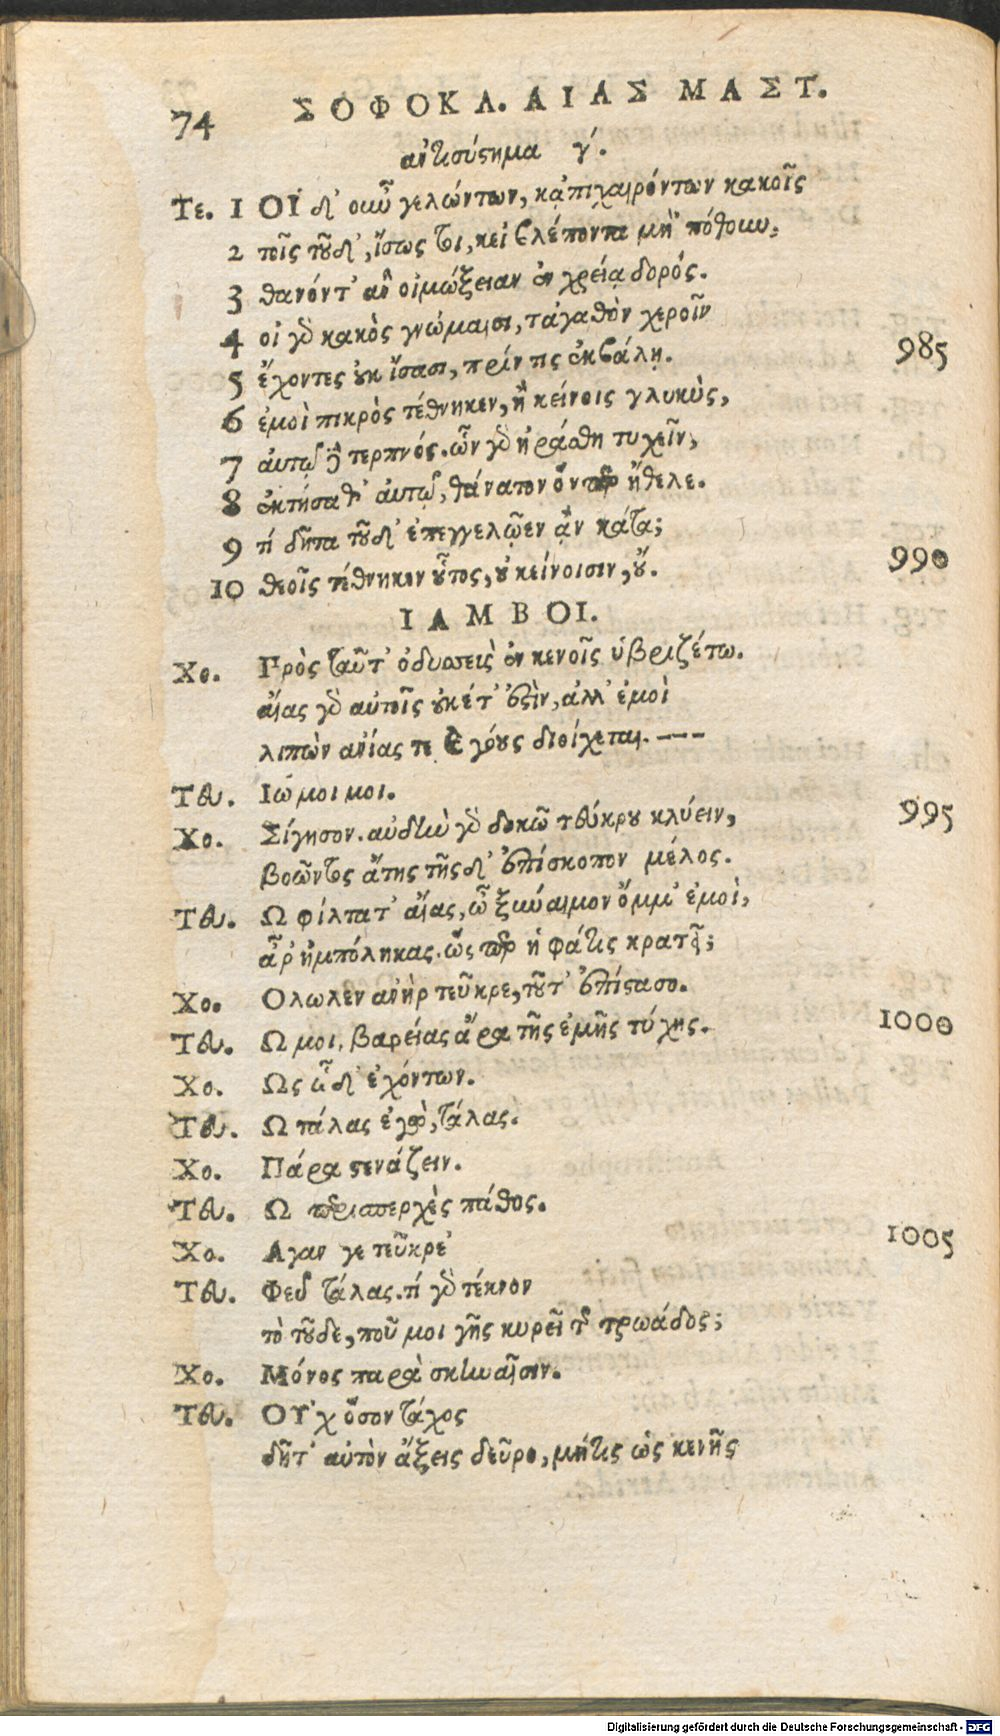 74 ΣΟΦΟΚΛ. ΑΙΑΣ ΜΑΣΤ.
ἀντισύστημα γ΄.
Τε. 1 ΟΙ δ' οὖν γελώντων, κᾀπιχαιρόντων κακοῖς
2 τοῖς τοῦδ', ἴσως τοι, κεἰ βλέποντα μὴ 'πόθουν,
3 θανόντ' ἂν οἰμώξειαν ἐν χρείᾳ δορός.
4 οἱ γὸ κακὸς γνώμαισι, τἀγαθὸν χεροῖν
5 ἔχοντες οὐκ ἴσασι, πρίν τις ἐκβάλῃ. 985
6 ἐμοὶ πικρὸς τέθνηκεν, ἢ κείνοις γλυκὺς,
7 αὑτῷ δὲ τερπνός. ὧν γὸ ἠράσθη τυχεῖν,
8 ἐκτήσαθ' αὑτῷ, θάνατον ὅνπερ ἤθελε.
9 τί δῆτα τοῦδ' ἐπεγγελῷεν ἂν κάτα;
10 θεοῖς τέθνηκεν οὗτος, οὐ κείνοισιν, οὔ. 990
ΙΑΜΒΟΙ.
Χο. Πρὸς ταῦτ' ὀδυσσεὺς ἐν κενοῖς ὑβριζέτω.
αἴας γὸ αὐτοῖς οὐκέτ' ἐστὶν, ἀλλ' ἐμοὶ
λιπὼν ἀνίας τε καὶ γόους διοίχεται. ---
Τευ. Ιώ μοι μοι.
Χο. Σίγησον. αὐδὴν γὸ δοκῶ τεύκρου κλύειν, 995
βοῶντος ἄτης τῆσδ' ἐπίσκοπον μέλος.
Τευ. Ω φίλτατ' αἴας, ὦ ξύναιμον ὄμμ' ἐμοὶ,
ἆρ' ἠμπόληκας. ὥσπερ ἡ φάτις κρατεῖ;
Χο. Ολωλεν ἀνὴρ τεῦκρε, τοῦτ' ἐπίστασο.
Τευ. Ω μοι, βαρείας ἄρα τῆς ἐμῆς τύχης. 1000
Χο. Ως ὧδ' ἐχόντων.
Τευ. Ω τάλας ἐγὼ, τάλας.
Χο. Πάρα στενάζειν.
Τευ. Ω περισπερχὲς πάθος.
Χο. Αγαν γε τεῦκρε 1005
Τευ. Φεῦ τάλας. τί γὸ τέκνον
τὸ τοῦδε, ποῦ μοι γῆς κυρεῖ τῆς τρωάδος;
Χο. Μόνος παρὰ σκηναῖσιν.
Τευ. ΟΥ'χ ὅσον τάχος
δῆτ' αὐτὸν ἄξεις δεῦρο, μήτις ὡς κενῆς
Digitalisierung gefördert durch die Deutsche Forschungsgemeinschaft - DFG